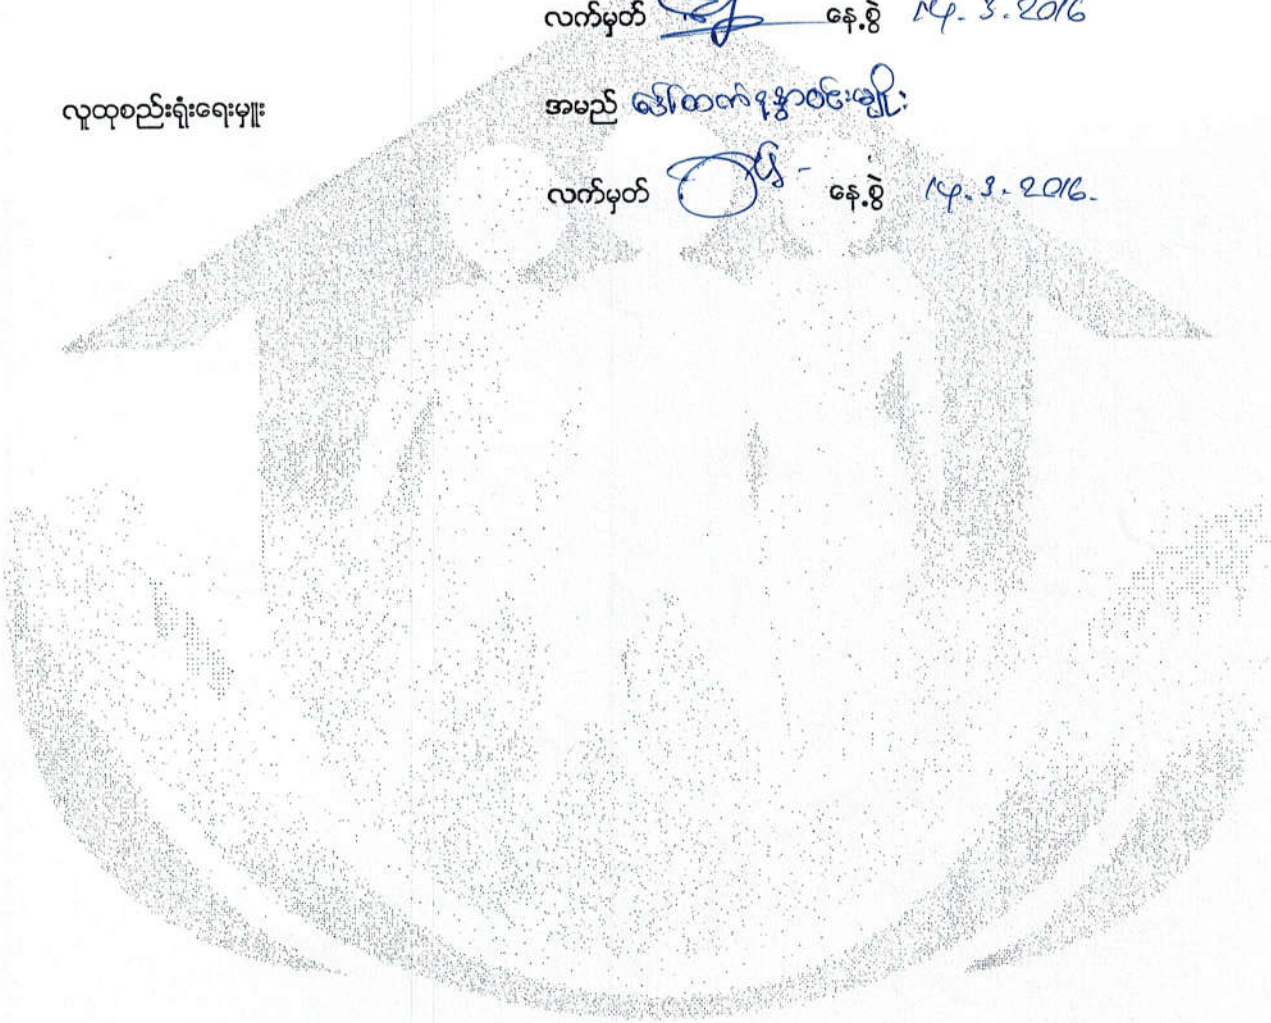 လက်မှတ် နေ့စွဲ 14.3.2016
လူထုစည်းရုံးရေးမှူး အမည် ဒေါ်ထက်နန္ဒာဝင်းမျိုး
လက်မှတ် နေ့စွဲ 14.3.2016.